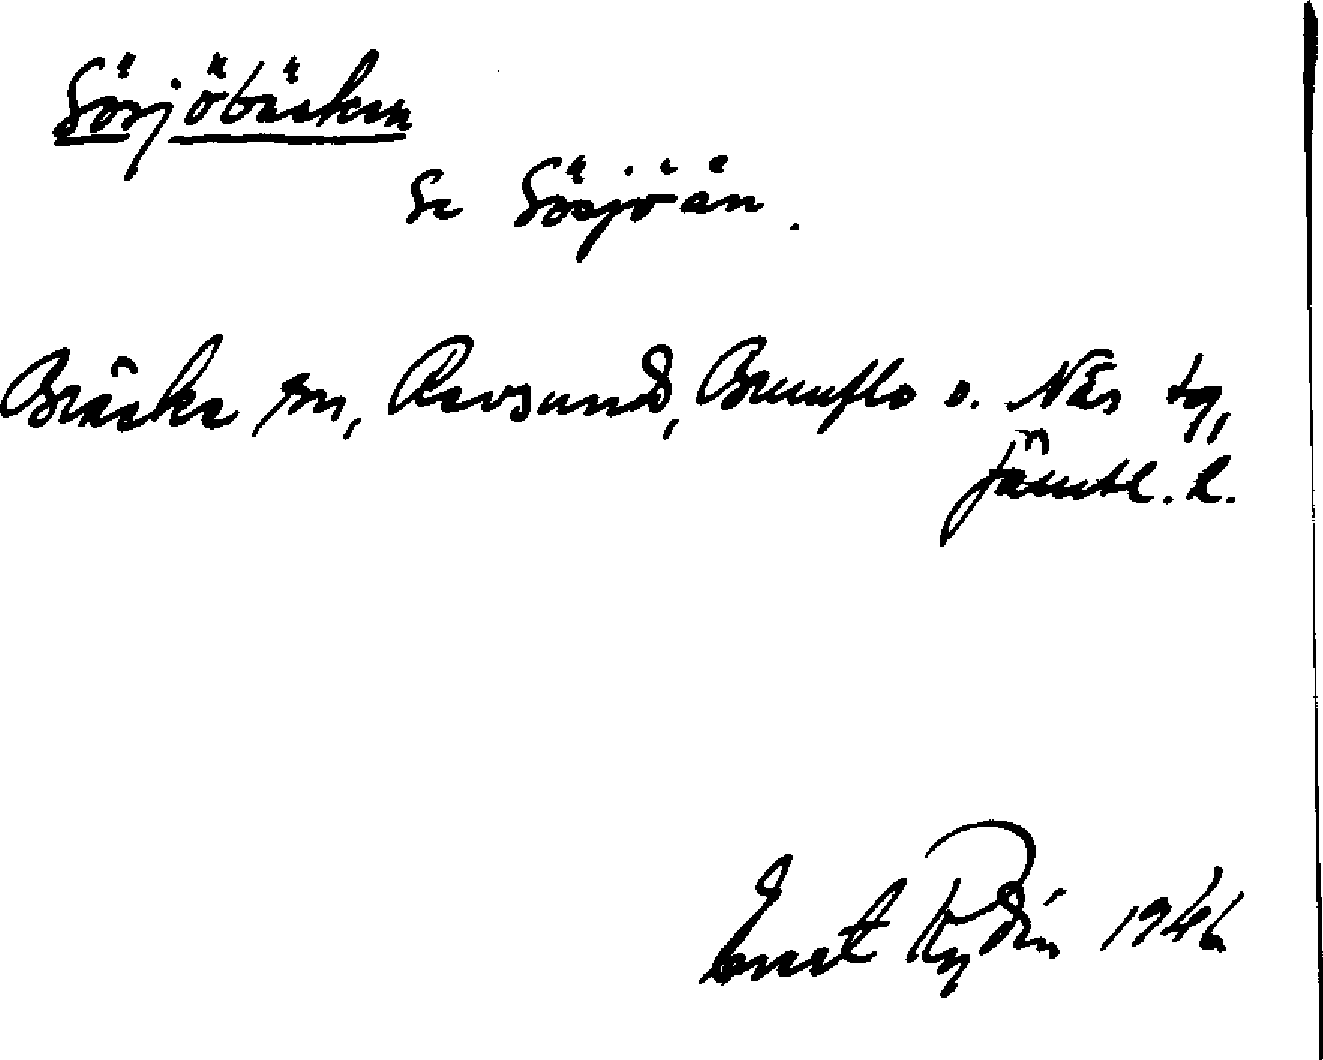 Sörjöbäcken
Se Sörjöån.
Bräcke sn, Revsund, Brunflo o. Näs tg,
Jämtl. l.
Ernst Rydin 1946